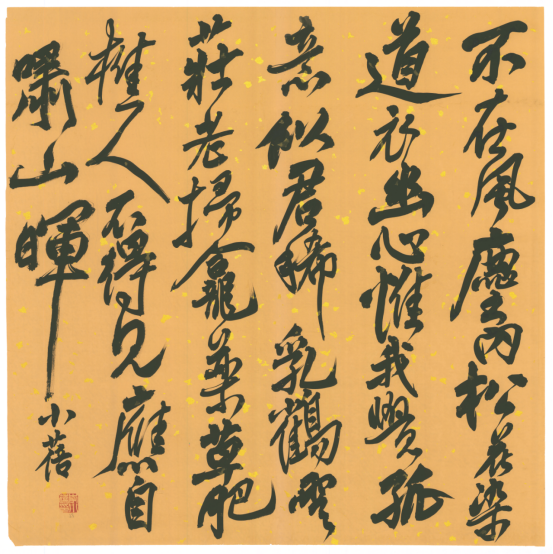 不在風塵內松花染
道衣幽心惟我覺孤
意似君稀乳鶴
莊老掃龕藥草肥
樵人不得見應自
嘯山暉
小蓓